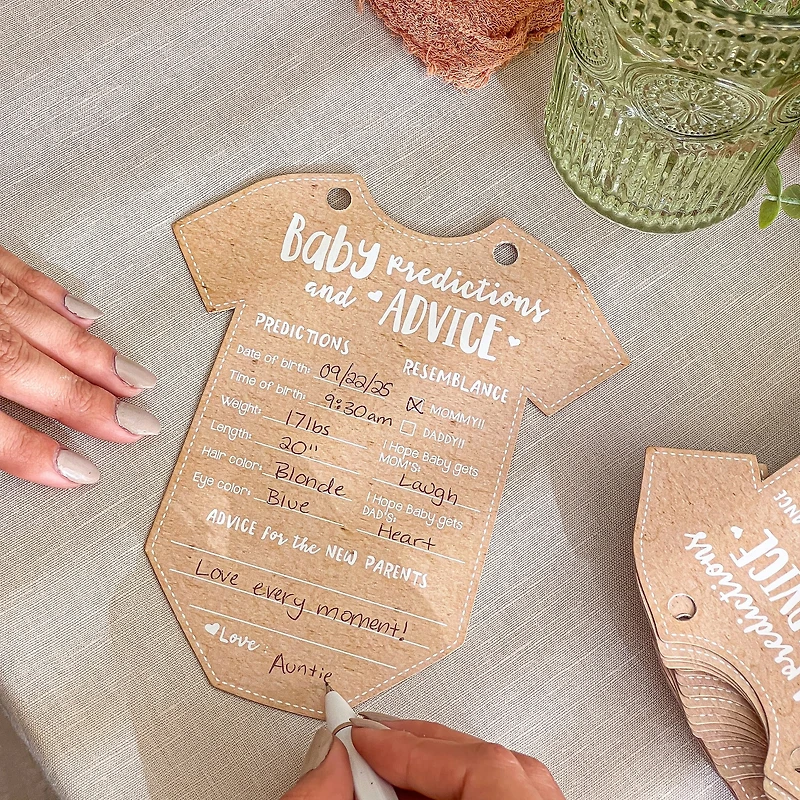 Baby predictions
and ADVICE
PREDICTIONS
Date of birth: 09/22/25
Time of birth: 9:30am
Weight: 17lbs
Length: 20"
Hair color: Blonde
Eye color: Blue
RESEMBLANCE
MOMMY!!
DADDY!!
I Hope Baby gets
MOM'S: Laugh
I Hope Baby gets
DAD'S: Heart
ADVICE for the NEW PARENTS
Love every moment!
Love Auntie
predictions